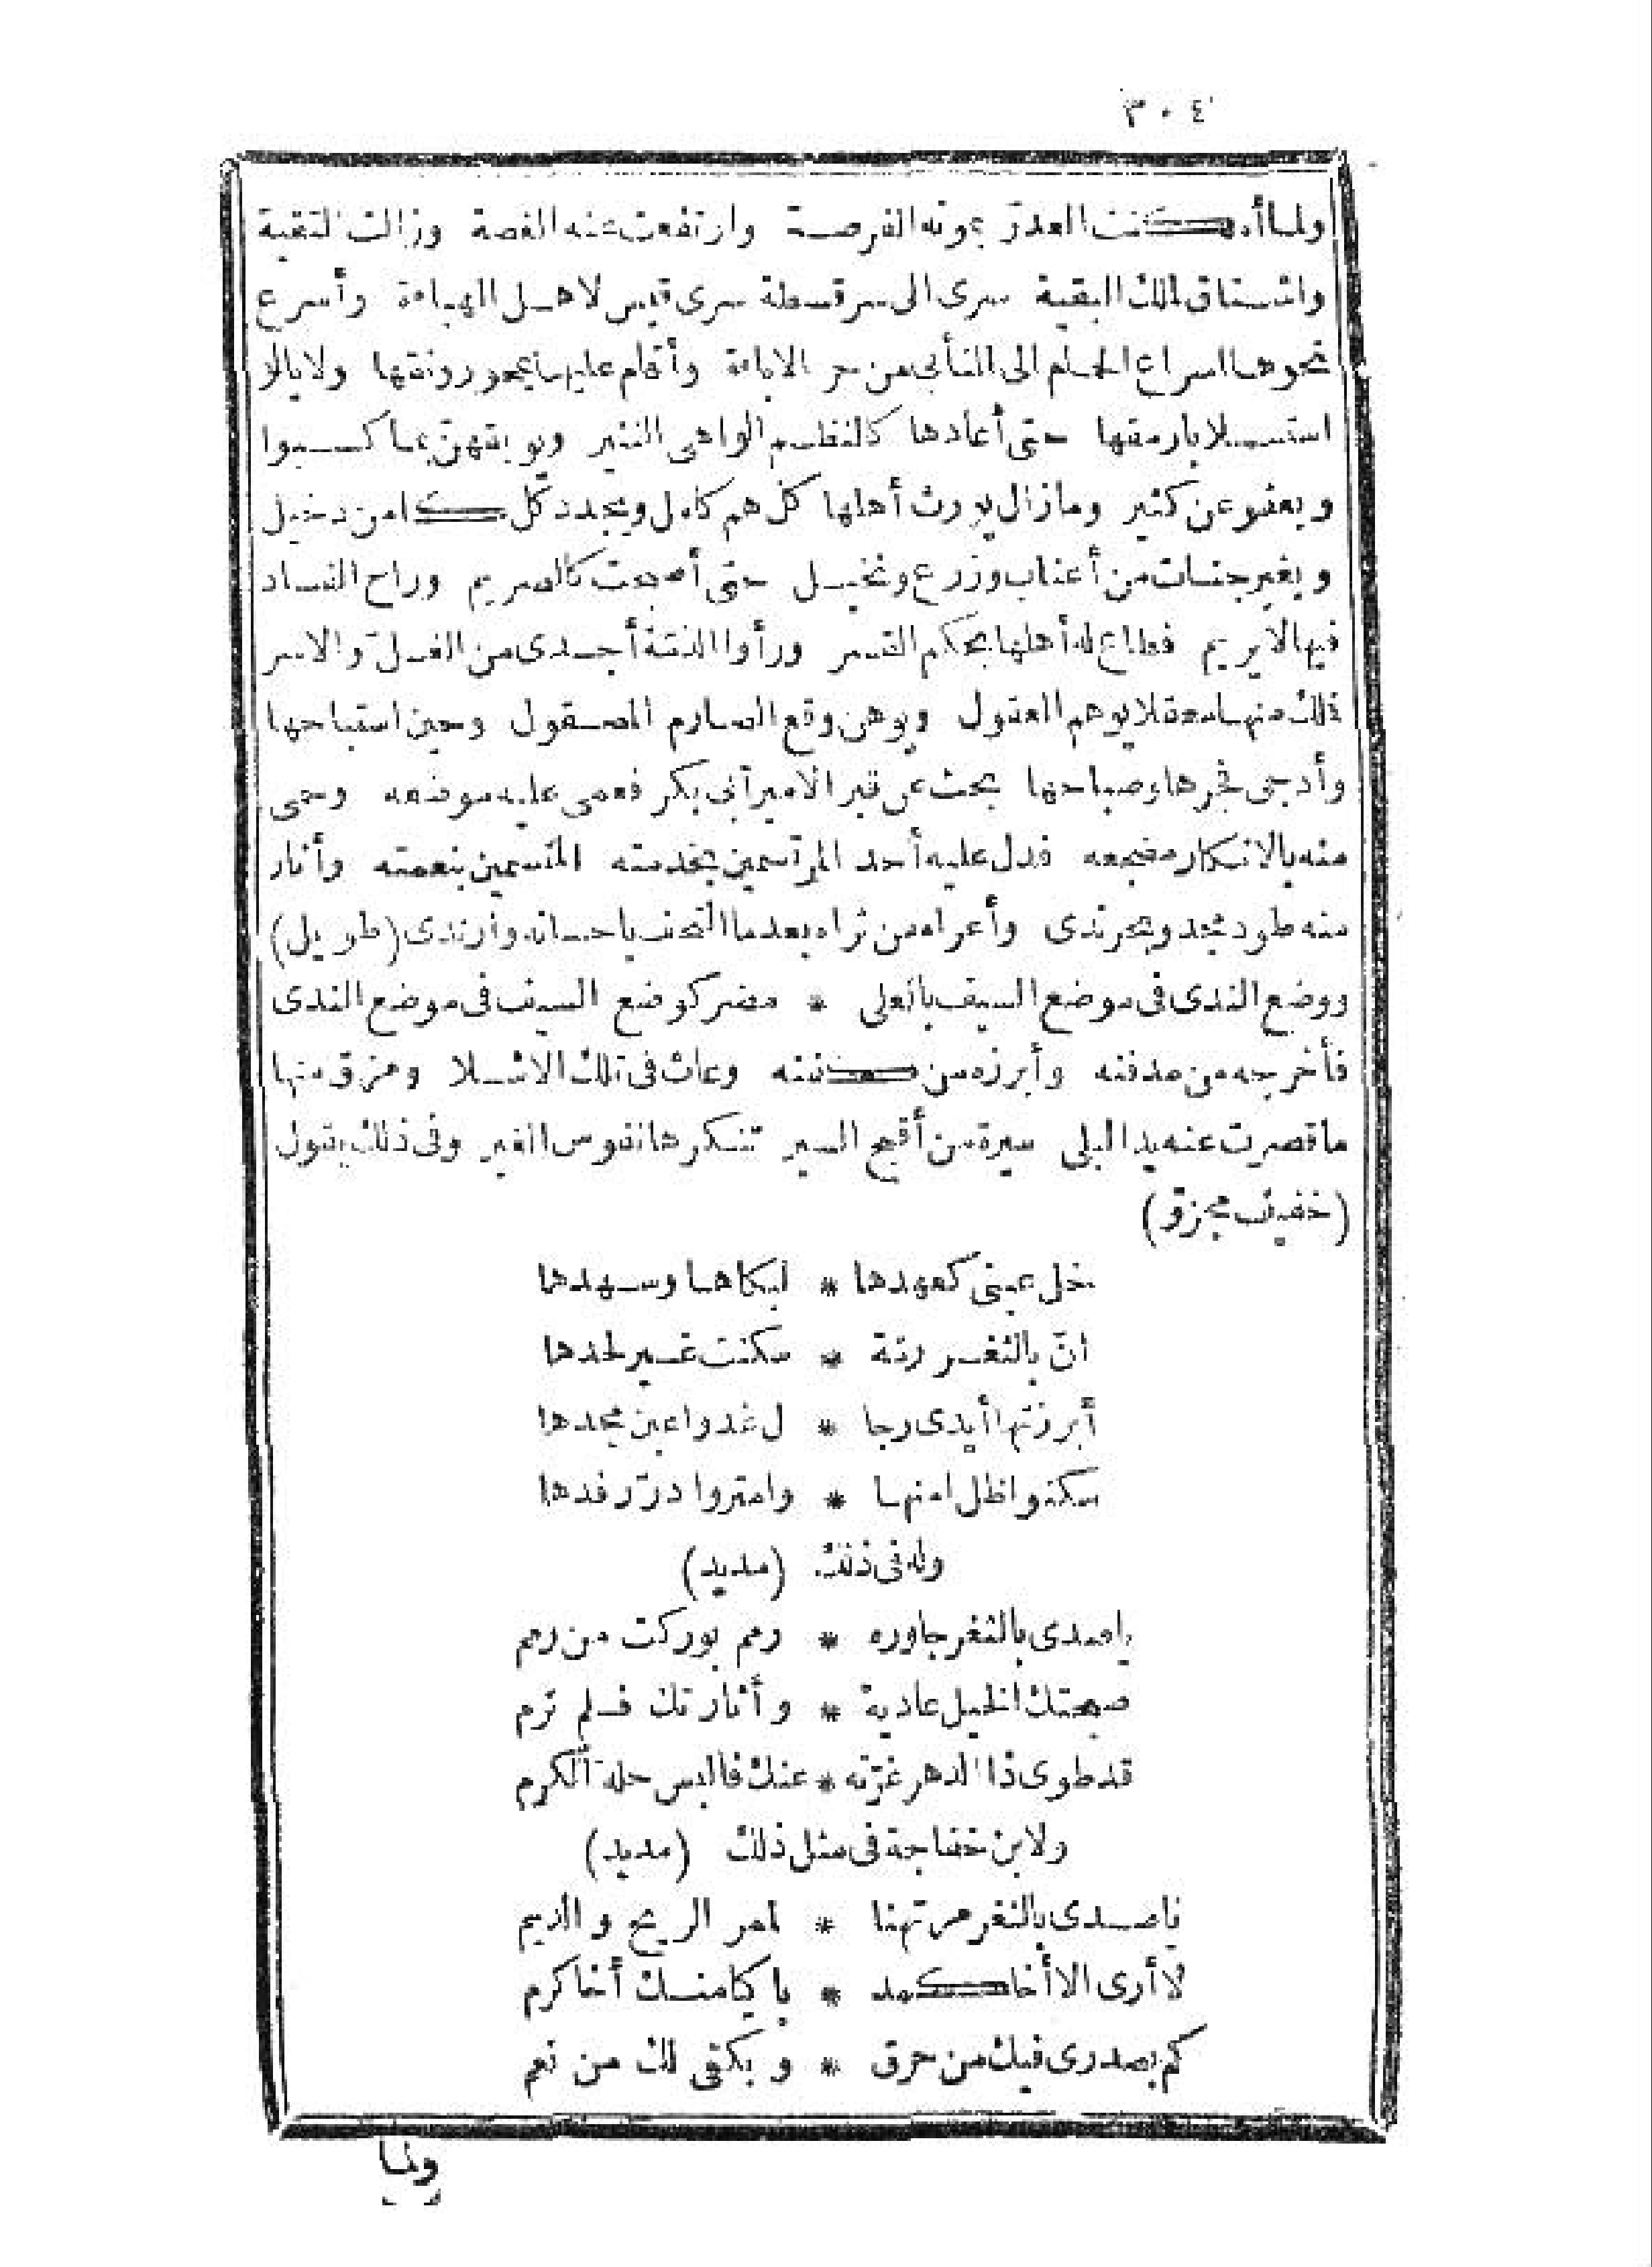 ٣٠٤
ولما أمكنت العدوّ بموته الفرصة وارتفعت عنه الغصة وزالت التقية
واشتاق لملك البقية سرى الى سرقسطة سرى قيس لاهل الهباءة وأسرع
نحوها اسراع الحلم الى النائي من حر الاباءة وأقام عليها يمحو رونقها ولا يالو
استيلابارمقها حتى أعادها كالنظم الواهى النثير ويوبقهنّ بما كسبوا
ويعفو عن كثير ومازال يورث أهلها كل هم كامل ويجدد كل كامن دخيل
ويغير جنات من أعناب وزرع ونخيل حتى أصبحت كالصريم وراح الفساد
فيها لا يريم فطاع له أهلها بحكم القسر ورأوا الذمّة أجدى من الغل والاسر
فملك منها معقلا يوهم العقول ويوهن وقع الصارم المصقول وحين استباحها
وأدجى فجرها وصباحها بحث عن قبر الامير أبى بكر فعمى عليه موضعه وحمى
منه بالانكار مضجعه فدل عليه أحد المرتسمين بخدمته المتسمين بنعمته وأثار
منه طود مجد وبحر ندى وأعراه من ثراه بعدما التحف باحسانه وارتدى (طويل)
ووضع الندى فى موضع السيف بالعلى * مضر كوضع السيف فى موضع الندى
فأخرجه من مدفنه وأبرزه من مكننه وعاث فى تلك الاشلا ومزق منها
ما قصرت عنه يد البلى سيرة من أقبح السير تنكرها نفوس الغير وفى ذلك يقول
(خفيف مجزوّ)
خل عينى كعهدها * لبكاها وسهدها
انّ بالثغر رمة * سكنت غير لحدها
أبرزتها أيدى رجا * ل غدوا عين مجدها
سكنوا ظل امنها * وامتروا درّ رفدها
وله فى ذلك (مديد)
ياصدى بالثغر جاوره * رمم بوركت من رمم
صبحتك الخيل عادية * وأثارتك فلم ترم
قد طوى ذا الدهر غرّته * عنك فالبس حلة الكرم
ولابن خفاجة فى مثل ذلك (مديد)
ياصدى بالثغر مرتهنا * لمر الريح والديم
لا أرى الا أخا كمد * باكيا منك أخا كرم
كم بصدرى فيك من حرق * وبكفى لك من نعم
ولما